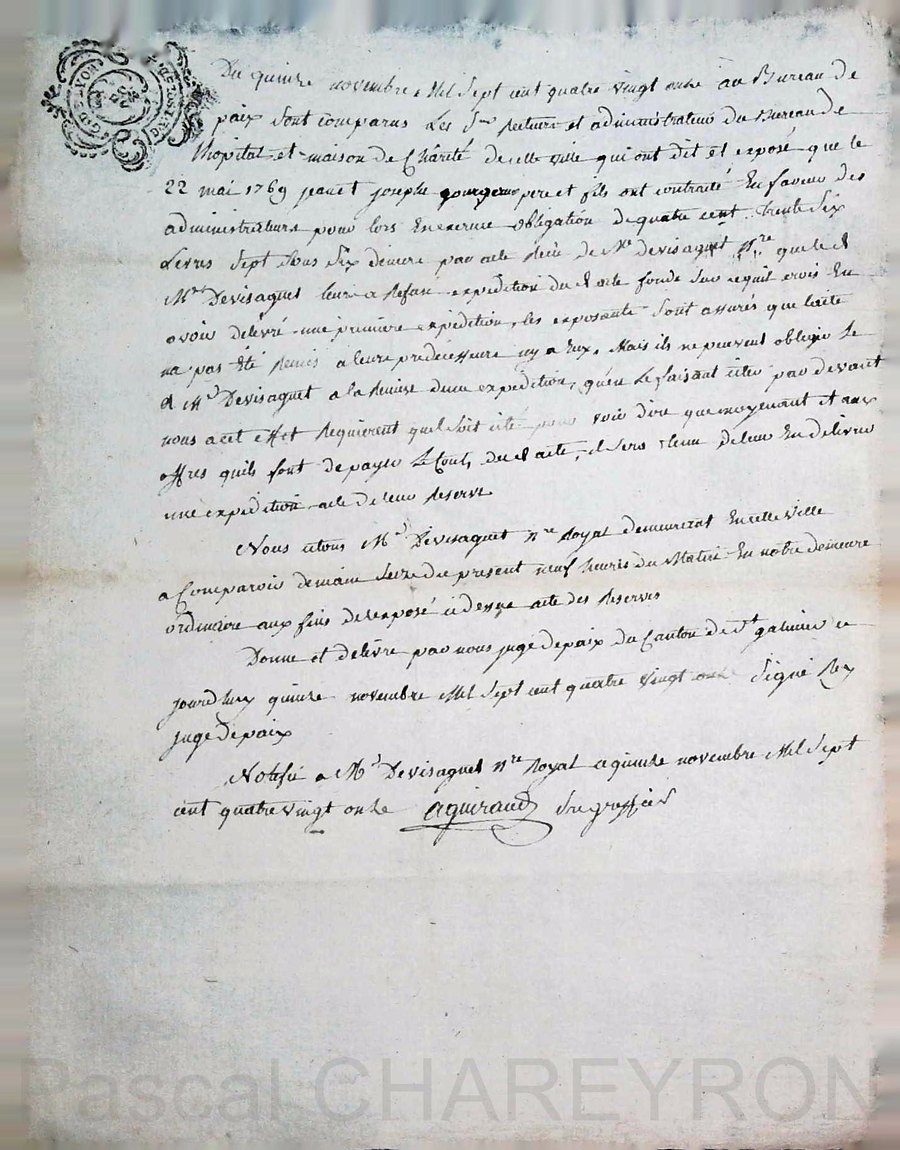 Du quinze novembre Mil Sept cent quatre vingt onze au Bureau de
paix sont comparus Les Srs Recteurs et administrateurs du Bureau de
lhopital et maison de Charité de cette ville qui ont dit et exposé que le
22 mai 1769 jean et joseph pere et fils ont contracté En faveur des
administrateurs pour lors En exercice obligation de quatre cent trente Six
Livres Sept Sous Six deniers par acte Reçu de Me Devisaguet nre que le d
Mre Devisaguet leur a Refusé expedition du d acte fondé sur ce quil croit En
avoir delivré une premiere expedition, les exposants sont assurés que
na pas Eté Remis a leurs predecesseurs ny a Eux, Mais ils ne peuvent obliger Le
d Mre Devisaguet a la Remise dune expedition, quen Le faisant citer par devant
nous a cet effet Requierent quil soit cité pour voir dire que moyenant et aux
offres quils font de payer Le Cout du d acte, il sera tenu de leur En delivrer
une expedition acte de leur Reserve
Nous citons Mre Devisaguet nre Royal demeurant En cette ville
a Comparoir demain Seize du present neuf heures du Matin En notre demeure
ordinaire aux fins de lexposé ci dessus acte des Reserves
Donné et délivré par nous juge de paix du Canton de St galmier ce
jourdhuy quinze novembre Mil Sept cent quatre vingt onze Signé Rey
juge de paix
Notifié a Mre Devisaguet nre Royal a quinze novembre Mil Sept
cent quatre vingt onze aguiraud greffier
Pascal CHAREYRON